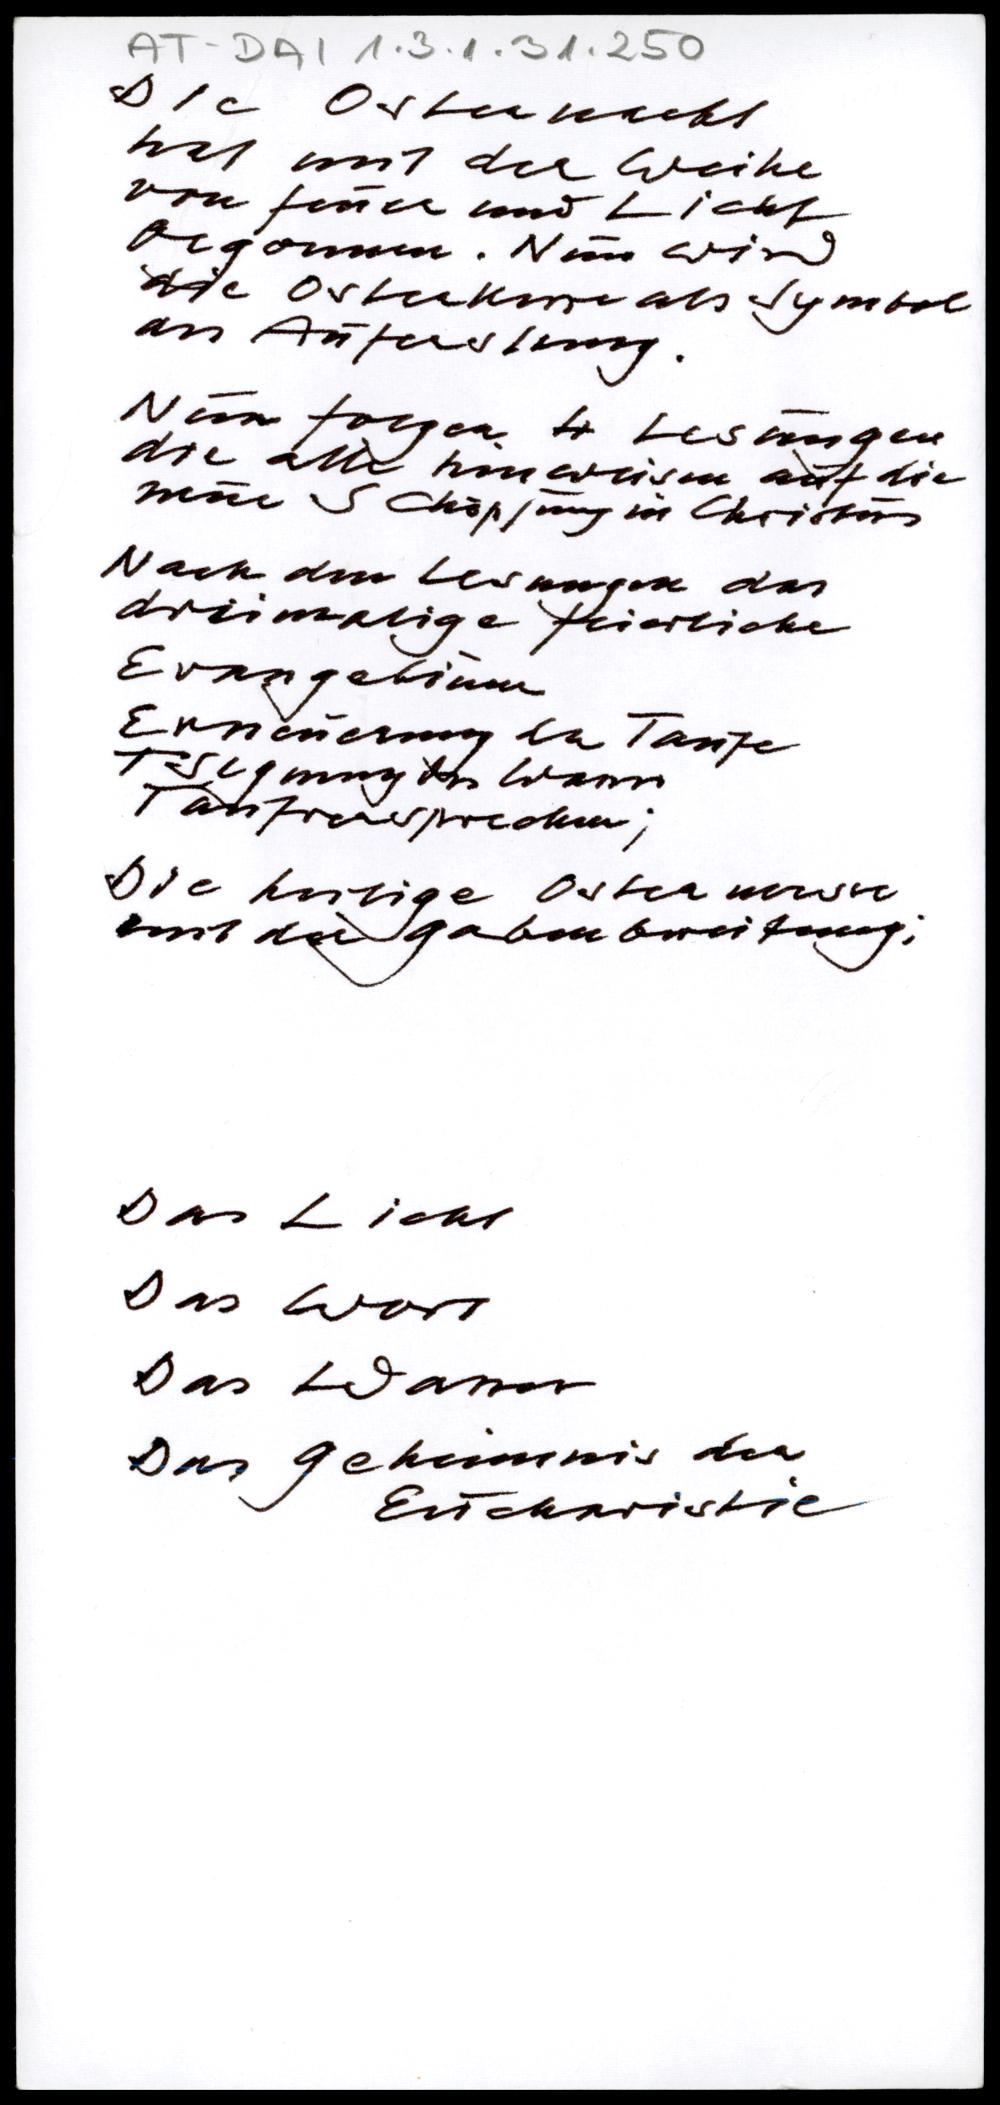 AT-DAI 1.3.1.31.250
Die Osternacht
hat mit der Weihe
von Feuer und Licht
begonnen. Nun wird
die Osterkerze als Symbol
der Auferstung.
Nun folgen 4 Lesungen
die alle hinweisen auf die
neue Schöpfung in Christus
Nach den Lesungen das
dreimalige feierliche
Evangelium
Erneuerung der Taufe
Segnung des Wasser
Taufversprechen;
Die heilige Ostermesse
mit der Gabenbereitung;
Das Licht
Das Wort
Das Wasser
Das Geheimnis der
Eucharistie